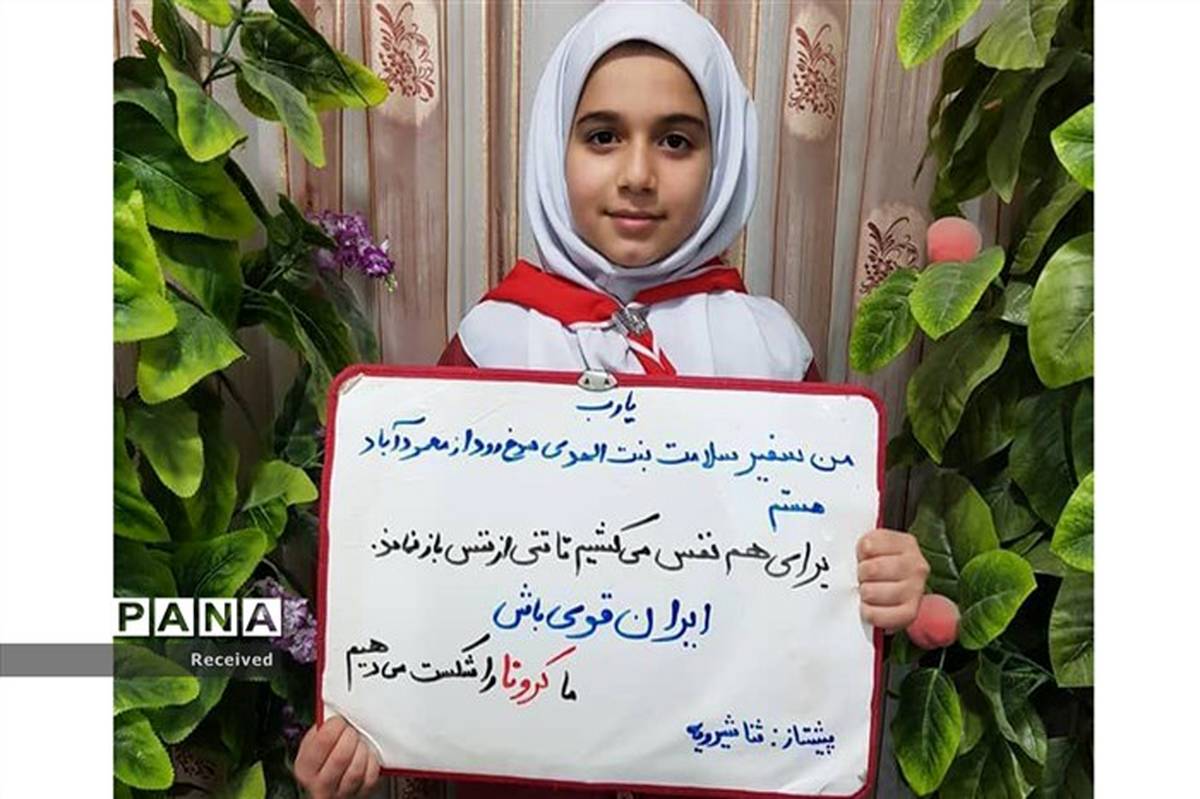 یارب
من سفیر سلامت بنت الهدی سرخ رود از محمودآباد
هستم
برای هم نفس می‌کشیم تا تنی از نفس باز نماند.
ایران قوی باش
ما کرونا را شکست می‌دهیم
پیشتاز: ثنا شیرویه
PANA
Received